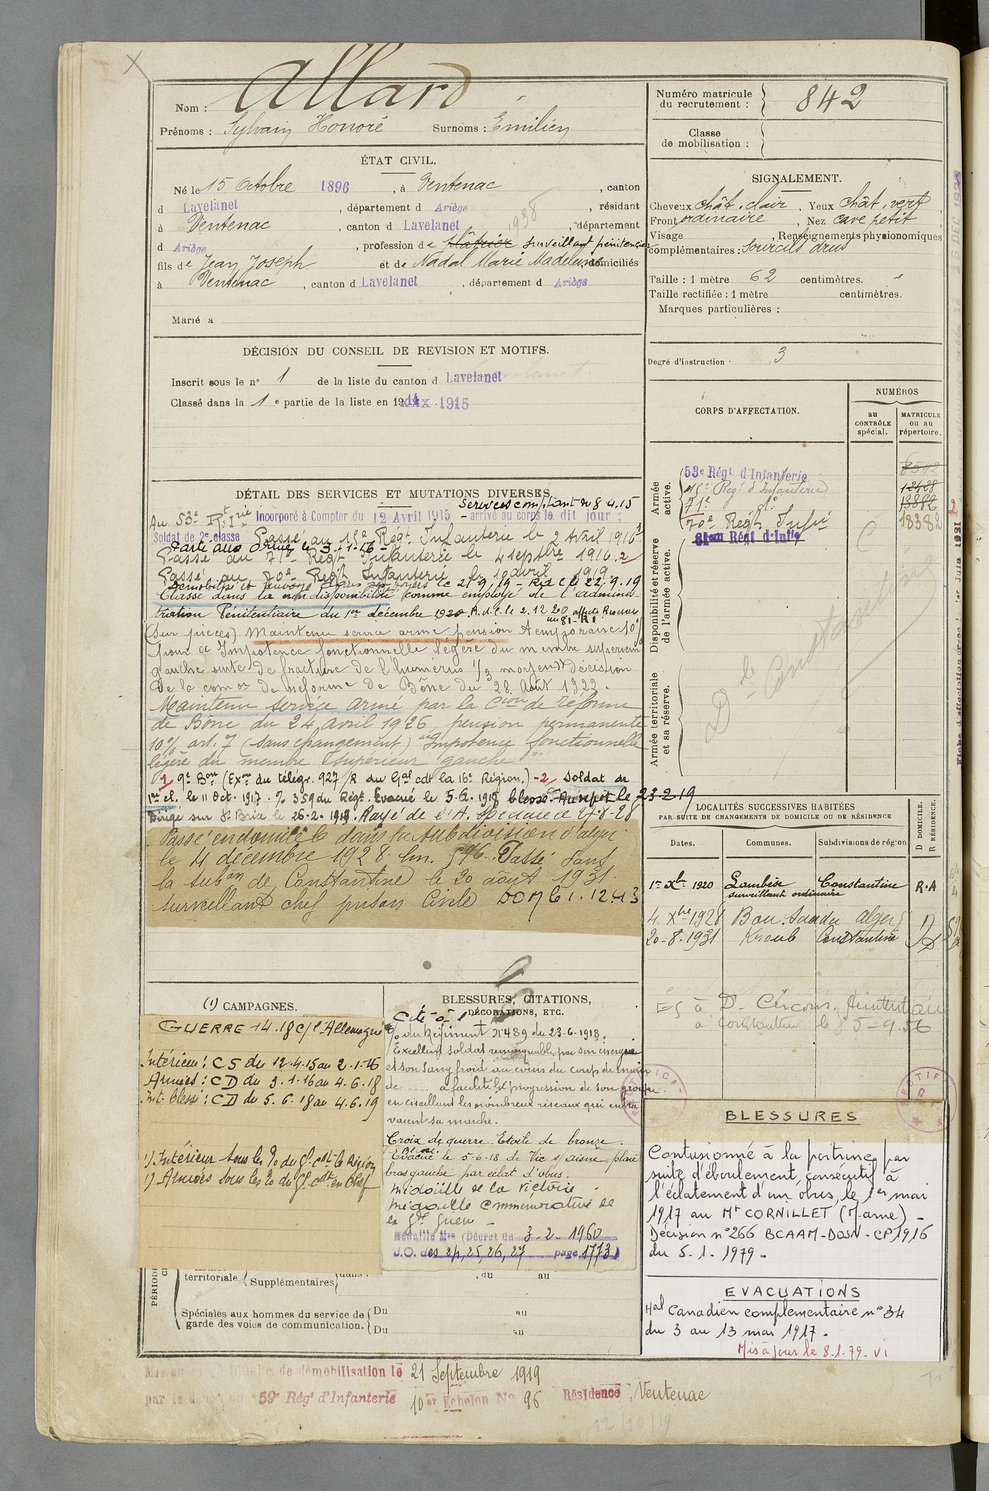 Nom : Allard
Prénoms : Sylvain Honoré Surnoms : Emilien
Numéro matricule du recrutement : 842
Classe de mobilisation :
ÉTAT CIVIL.
Né le 15 Octobre 1896, à Ventenac, canton
d Lavelanet, département d Ariège, résidant
à Ventenac, canton d Lavelanet, département
d Ariège, profession de surveillant pénitencier
fils de Jean Joseph et de Nadal Marie Madeleine, domiciliés
à Ventenac, canton d Lavelanet, département d Ariège
Marié à
SIGNALEMENT.
Cheveux chât. clair, Yeux chât. vert
Front ordinaire, Nez cave petit
Visage , Renseignements physionomiques
complémentaires : sourcils drus
Taille : 1 mètre 62 centimètres.
Taille rectifiée : 1 mètre centimètres.
Marques particulières :
Degré d'instruction : 3
DÉCISION DU CONSEIL DE REVISION ET MOTIFS.
Inscrit sous le n° 1 de la liste du canton d Lavelanet
Classé dans la 1e partie de la liste en 1915
CORPS D'AFFECTATION.
NUMÉROS
au CONTRÔLE spécial.
MATRICULE ou au répertoire.
Armée active.
53e Régt d'Infanterie
15e Régt d'Infanterie
71e dº
70e Régt Infie
81em Régt d'Infie
18382
Disponibilité et réserve de l'armée active.
Armée territoriale et sa réserve.
Dle Constantine
DÉTAIL DES SERVICES ET MUTATIONS DIVERSES.
Services comptant du 8.4.15
Au 53e Rt Irie Incorporé à Compter du 12 Avril 1915 - arrivé au corps le dit jour ;
Soldat de 2e classe Passé au 15e Régt Infanterie le 2 Avril 1916
Parti aux Armées le 3-1-16
Passé au 71e Régt Infanterie le 4 septbre 1916. 2
Passé au 70e Régt Infanterie le 10 avril 1919
Classé dans la non disponibilité comme employé de l'Adminis-
tration Pénitentiaire du 1er décembre 1920
(sur pièces) Maintenu service armé pension temporaire 10%
pour "Impotence fonctionnelle légère du membre supérieur
gauche suite de fracture de l'humérus 1/3 moyen" Décision
de la comon de réforme de Bône du 28 Août 1922.
Maintenu service armé par la Cion de Réforme
de Bône du 24 avril 1926, pension permanente
10% art. 7 (sans changement) "Impotence fonctionnelle
légère du membre supérieur gauche"
1, 9e Bon (Exon du télégr. 927/R du Gal cdt la 16e Région.) - 2, Soldat de
1re cl. le 11 Oct. 1917. Evacué le 5-6-1918 blessé. le 23-2-19
Dirigé sur St Brix le 26-2-1919.
Passé en domicile dans la subdivision d'Alger
le 4 décembre 1928. Passé dans
la subon de Constantine le 20 août 1931.
surveillant chef prison civile
LOCALITÉS SUCCESSIVES HABITÉES
PAR SUITE DE CHANGEMENTS DE DOMICILE OU DE RÉSIDENCE
Dates. Communes. Subdivisions de région D DOMICILE. R RÉSIDENCE.
1er Xbre 1920 Lambèse Constantine R.A
surveillant ordinaire
4 Xbre 1928 Bou Saada Alger D
20-8-1931 Kroub Constantine
(1) CAMPAGNES.
GUERRE 14.18 c/l'Allemagne
Intérieur : CS du 12.4.15 au 2.1.16
Armées : CD du 3.1.16 au 4.6.18
Int. blessé : CD du 5.6.18 au 4.6.19
territoriale Supplémentaires dans :
, du au
Spéciales aux hommes du service de garde des voies de communication. Du au
Du au
BLESSURES, CITATIONS,
DÉCORATIONS, ETC.
Cité à l'
O/ du Régiment N° 489 du 23.6.1918.
Excellent soldat remarquable par son énergie
et son sang froid au cours du coup de main
de .... a facilité la progression de son groupe
en cisaillant les nombreux réseaux qui entra
vaient sa marche.
Croix de guerre Etoile de bronze.
Evacué le 5-6-18 de Vic s/Aisne plaie
bras gauche par éclat d'obus.
Médaille de la victoire
Médaille Commémorative de
la gde Guerre
Médaille Mre (Décret du 3-2-1960
J.O. des 24, 25, 26, 27 page 1773)
BLESSURES
Contusionné à la poitrine par
suite d'éboulement, consécutif à
l'éclatement d'un obus, le 1er mai
1917 au Mt CORNILLET (Marne) _
Décision n°266 BCAAM-DOSN-CP1916
du 5.1.1979 -
EVACUATIONS
Hal Canadien complémentaire n°34
du 3 au 13 mai 1917.
Mis à jour le 8.1.79. VI
de démobilisation le 21 Septembre 1919
par le dépôt du 59e Régt d'Infanterie 10er Echelon No 96 Résidence Ventenac
12/10/19